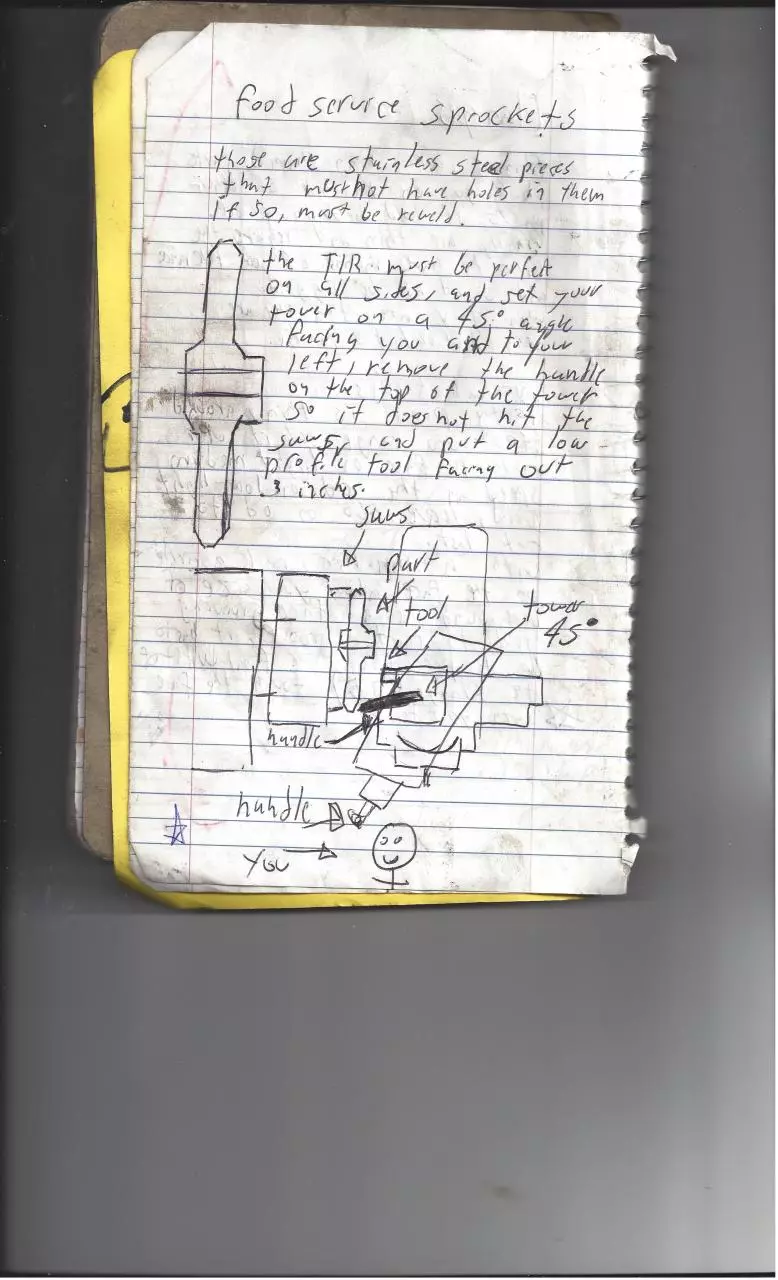 food service sprockets
those are stainless steel pieces
that must not have holes in them
if so, must be reweld.
the TIR must be perfect
on all sides, and set your
tower on a 45° angle
facing you and to your
left, remove the handle
on the top of the tower
so it does not hit the
jaws, and put a low-
profile tool facing out
3 inches.
jaws
part
tool
tower
45°
handle
handle
you